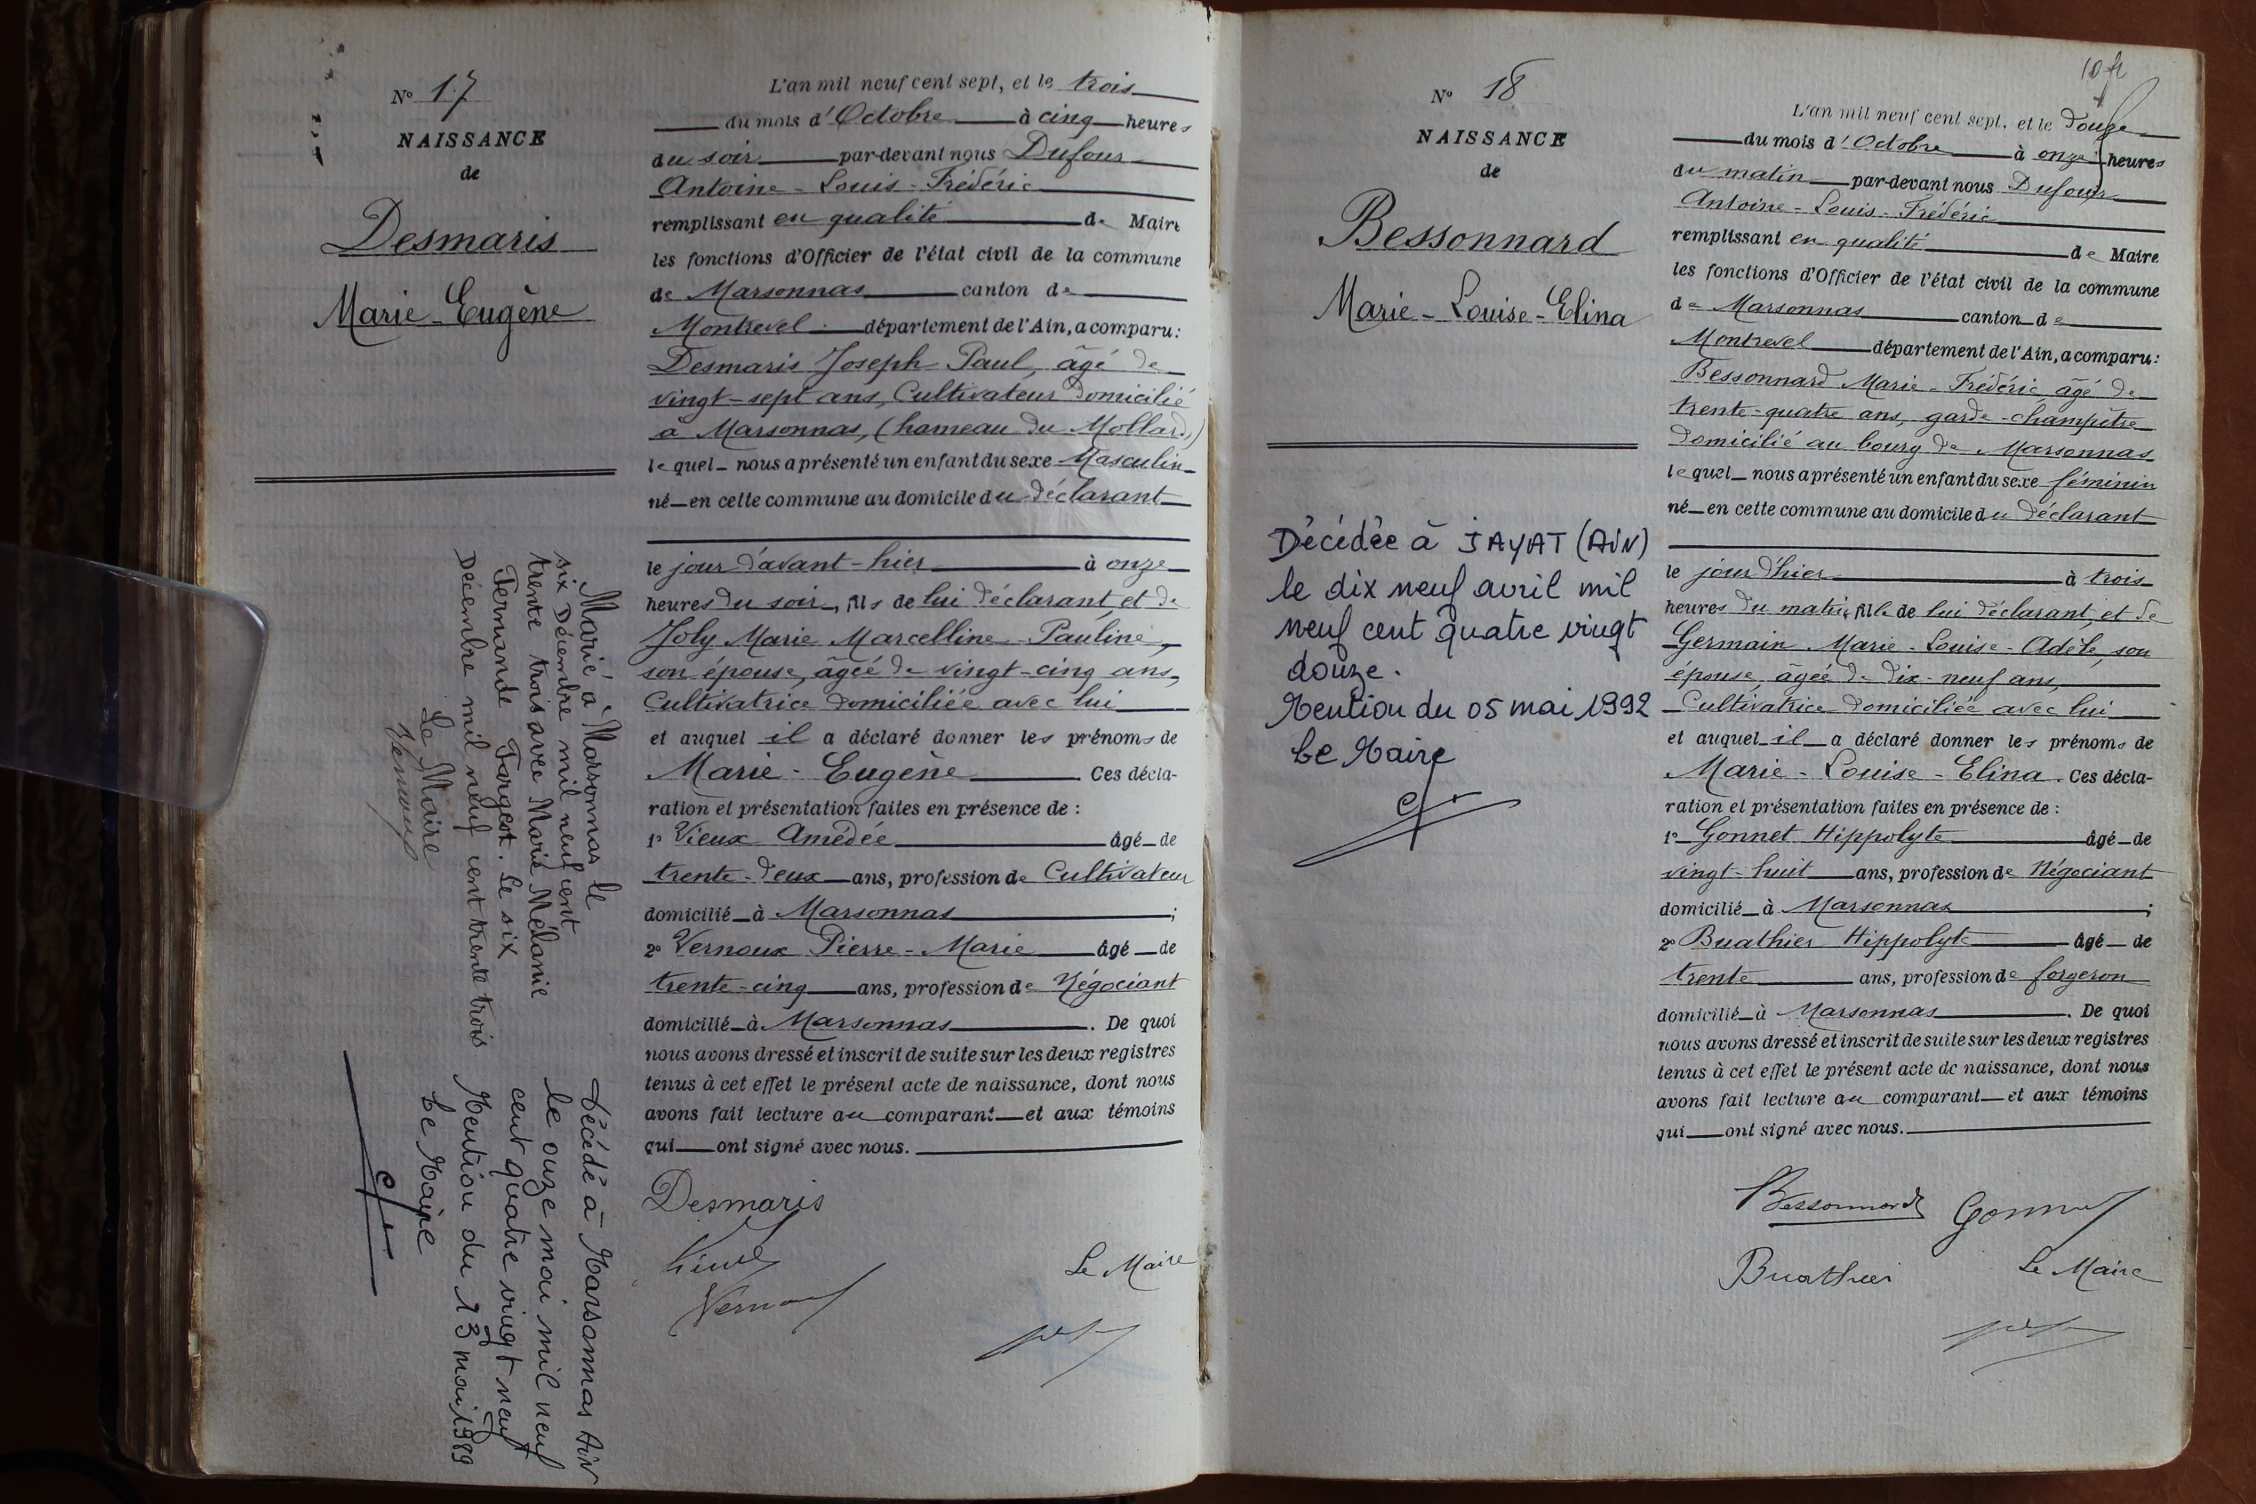 N° 17
NAISSANCE
de
Desmaris
Marie-Eugène
Marié à Marsonnas le
six Décembre mil neuf cent
trente trois avec Marie Mélanie
Fernande Fargeot. Le six
Décembre mil neuf cent trente trois
Le Maire
Vernoux
Décédé à Marsonnas Ain
le onze mai mil neuf
cent quatre vingt neuf
Mention du 13 mai 1989
Le Maire
L'an mil neuf cent sept, et le trois
du mois d'Octobre à cinq heures
du soir par-devant nous Dufour
Antoine-Louis-Frédéric
remplissant en qualité de Maire
les fonctions d'Officier de l'état civil de la commune
de Marsonnas canton de
Montrevel département de l'Ain, a comparu:
Desmaris Joseph-Paul, âgé de
vingt-sept ans, Cultivateur domicilié
à Marsonnas, (hameau du Mollard)
lequel nous a présenté un enfant du sexe Masculin
né en cette commune au domicile du déclarant
le jour d'avant-hier à onze
heures du soir, fils de lui déclarant, et de
Joly Marie Marcelline-Pauline,
son épouse, âgée de vingt-cinq ans,
Cultivatrice domiciliée avec lui
et auquel il a déclaré donner les prénoms de
Marie-Eugène Ces décla-
ration et présentation faites en présence de :
1° Vieux Amédée âgé de
trente-deux ans, profession de Cultivateur
domicilié à Marsonnas ;
2° Vernoux Pierre-Marie âgé de
trente-cinq ans, profession de Négociant
domicilié à Marsonnas. De quoi
nous avons dressé et inscrit de suite sur les deux registres
tenus à cet effet le présent acte de naissance, dont nous
avons fait lecture au comparant et aux témoins
qui ont signé avec nous.
Desmaris
Vieux
Le Maire
Vernoux
N° 18
NAISSANCE
de
Bessonnard
Marie-Louise-Elina
Décédée à JAYAT (AiN)
le dix neuf avril mil
neuf cent quatre vingt
douze.
Mention du 05 mai 1992
Le Maire
L'an mil neuf cent sept, et le douze
du mois d'Octobre à onze heures
du matin par-devant nous Dufour
Antoine-Louis-Frédéric
remplissant en qualité de Maire
les fonctions d'Officier de l'état civil de la commune
de Marsonnas canton de
Montrevel département de l'Ain, a comparu:
Bessonnard Marie-Frédéric âgé de
trente-quatre ans, garde-champêtre
domicilié au bourg de Marsonnas
lequel nous a présenté un enfant du sexe féminin
né en cette commune au domicile du déclarant
le jour d'hier à trois
heures du matin, fille de lui déclarant, et de
Germain Marie-Louise-Adèle, son
épouse, âgée de dix-neuf ans,
Cultivatrice domiciliée avec lui
et auquel il a déclaré donner les prénoms de
Marie-Louise-Elina. Ces décla-
ration et présentation faites en présence de :
1° Gonnet Hippolyte âgé de
vingt-huit ans, profession de Négociant
domicilié à Marsonnas ;
2° Buathier Hippolyte âgé de
trente ans, profession de forgeron
domicilié à Marsonnas. De quoi
nous avons dressé et inscrit de suite sur les deux registres
tenus à cet effet le présent acte de naissance, dont nous
avons fait lecture au comparant et aux témoins
qui ont signé avec nous.
Bessonnard Gonnet
Buathier Le Maire